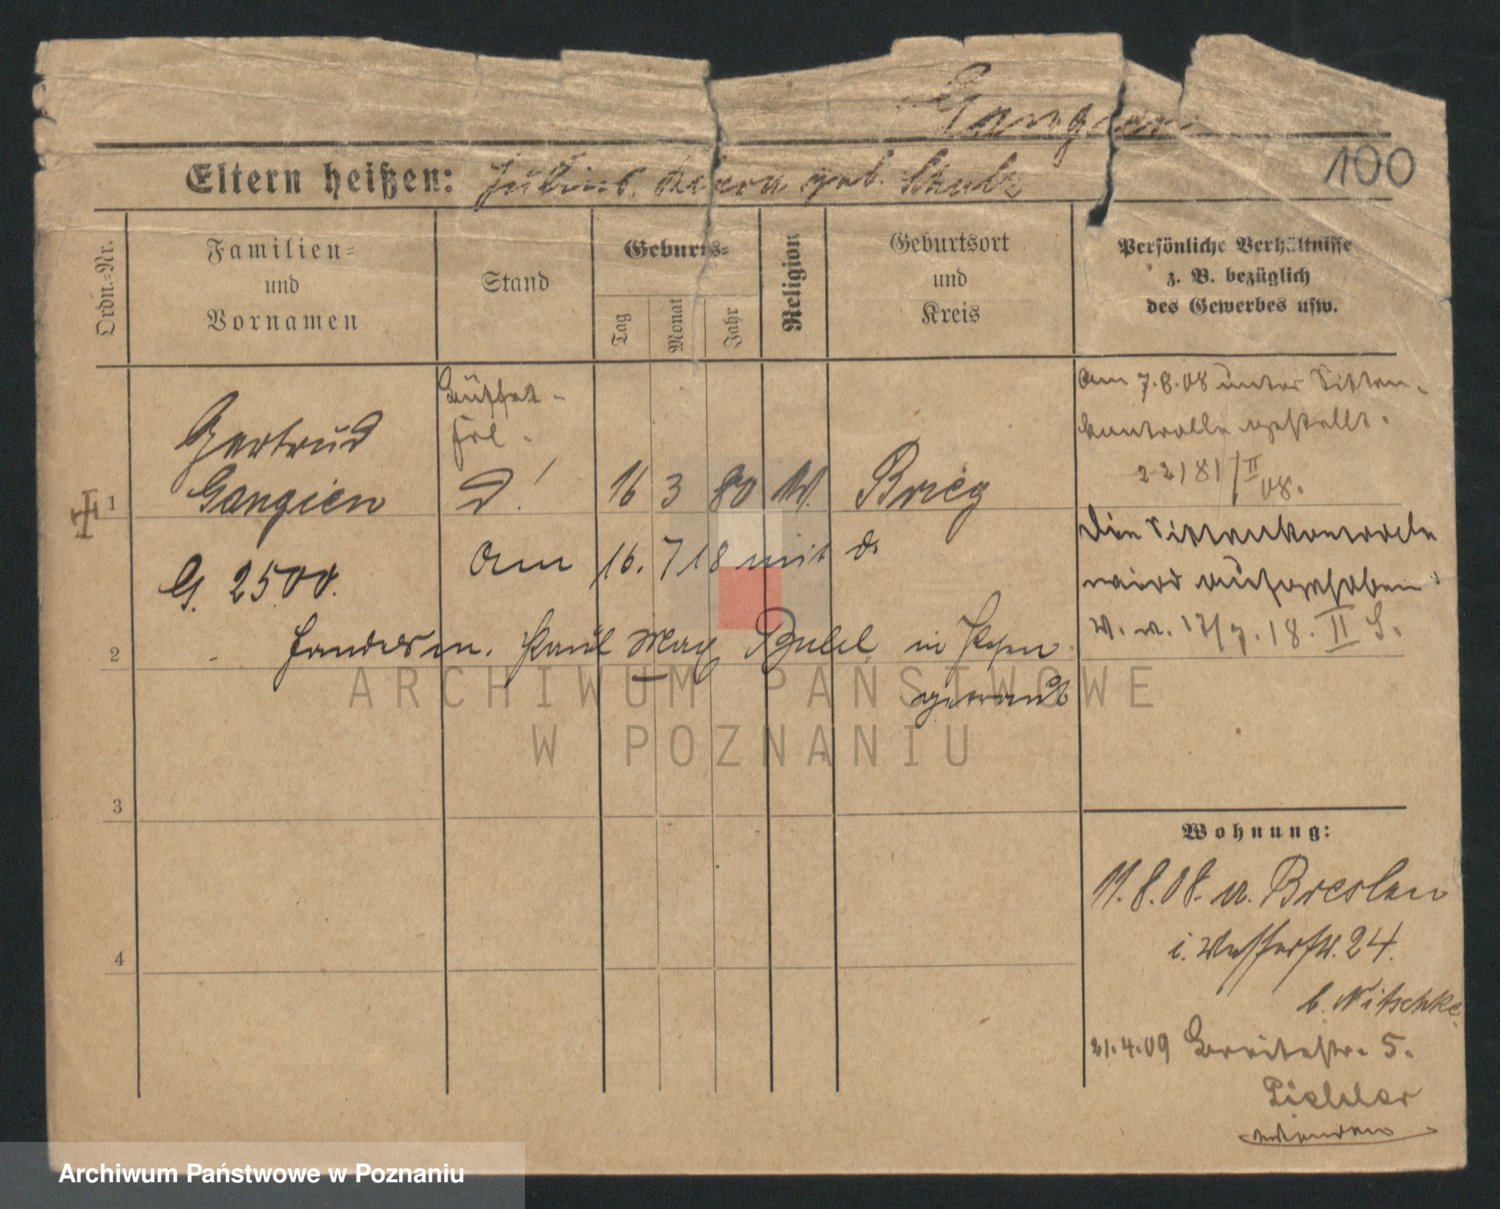 Gangien
100
Eltern heißen: Julius. geb. Schulz
Ordn.-Nr.
Familien-
und
Vornamen
Stand
Geburts-
Tag
Monat
Jahr
Religion
Geburtsort
und
Kreis
Persönliche Verhältnisse
z. B. bezüglich
des Gewerbes usw.
Büffet-
frl.
Am 7.8.08 unter Sitten-
kontrolle gestellt.
2281/II 08.
1
Gertrud
Gangien
16 3 80
Brieg
Die Sittenkontrolle
wird aufgehoben
G. 2500.
Am 16. 7 18 mit d.
17/7.18. II S.
2
Paul Max in Posen
getraut
3
4
Wohnung:
11.8.08. a. Breslau
24.
b. Nitschke
21.4.09 Breitestr. 5.
ARCHIWUM PAŃSTWOWE
W POZNANIU
Archiwum Państwowe w Poznaniu